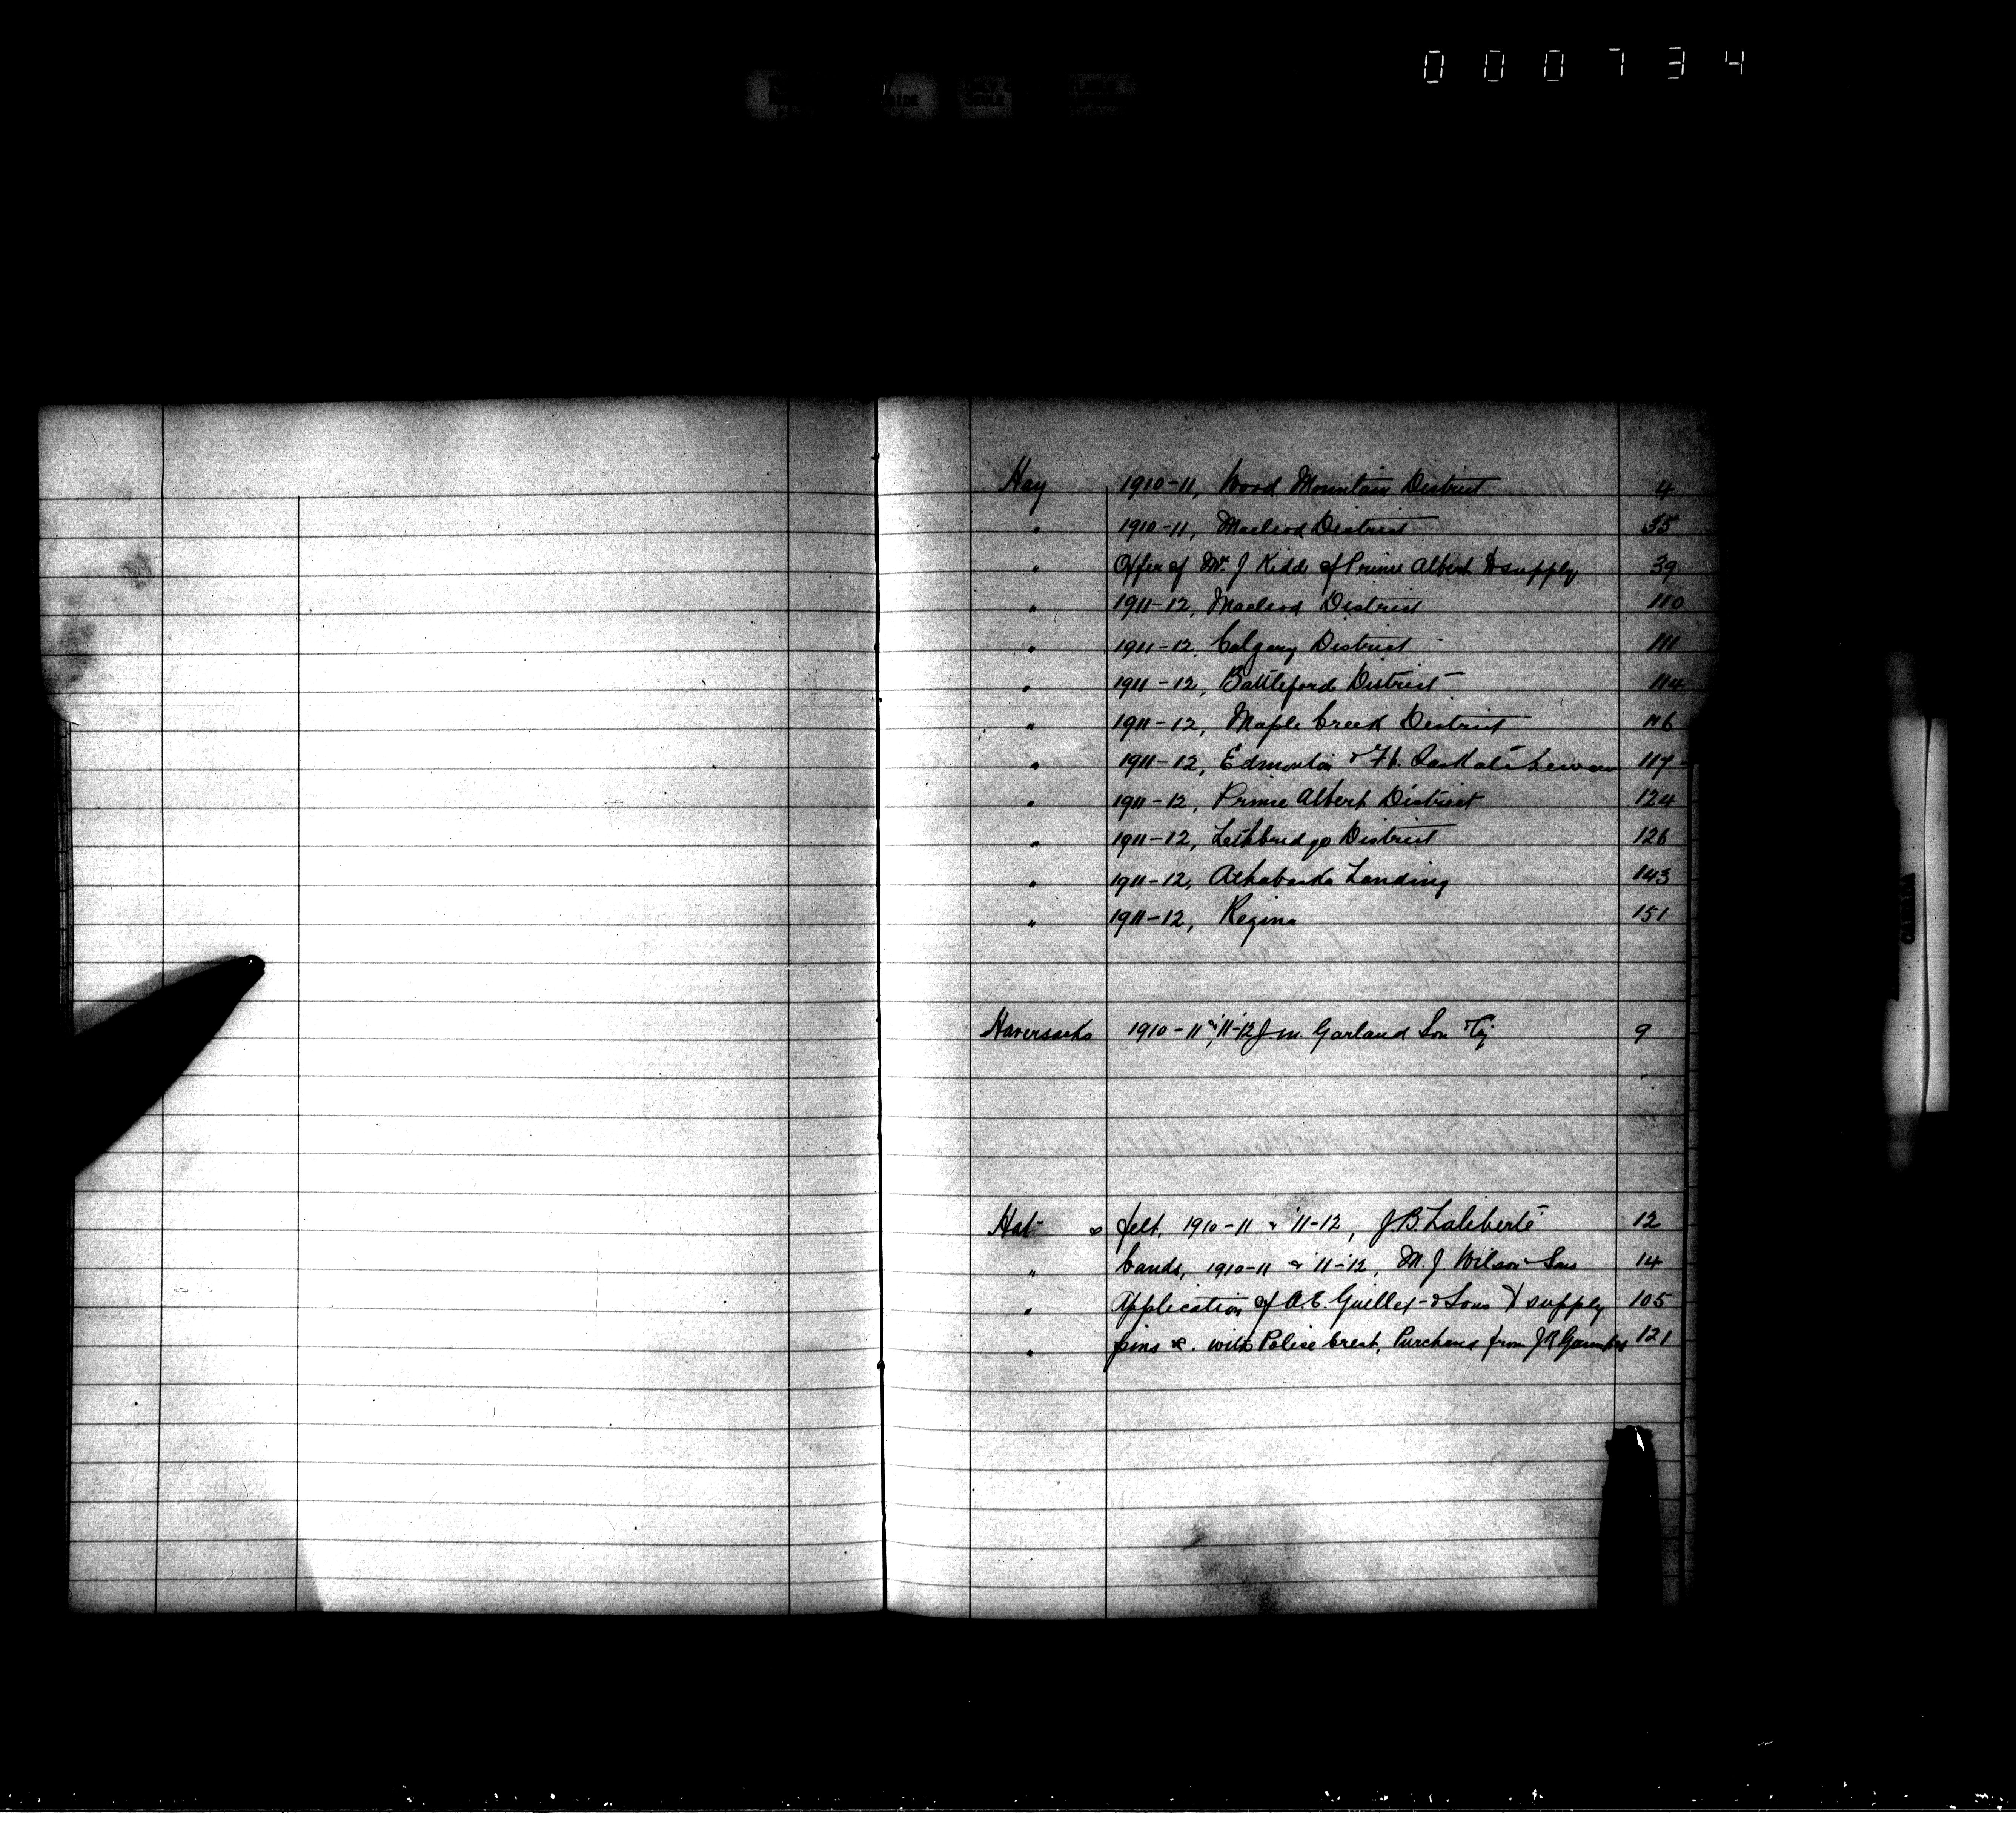 000734
Hay 1910-11, Wood Mountain District 4
" 1910-11, Macleod District 35
" Offer of Mr. J Kidd of Prince Albert to supply 39
" 1911-12, Macleod District 110
" 1911-12, Calgary District 111
" 1911-12, Battleford District 114
" 1911-12, Maple Creek District 116
" 1911-12, Edmonton & Ft. Saskatchewan 117
" 1911-12, Prince Albert District 124
" 1911-12, Lethbridge District 126
" 1911-12, Athabaska Landing 143
" 1911-12, Regina 151
Haversacks 1910-11 & '11-12 J. M. Garland Son & Cy 9
Hats felt, 1910-11 & '11-12, J. B. Laliberté 12
" bands, 1910-11 & '11-'12, M. J. Wilson & Sons 14
" Application of A. E. Guillet & Sons to supply 105
" pins &c. with Police Crest, Purchase from J R 121